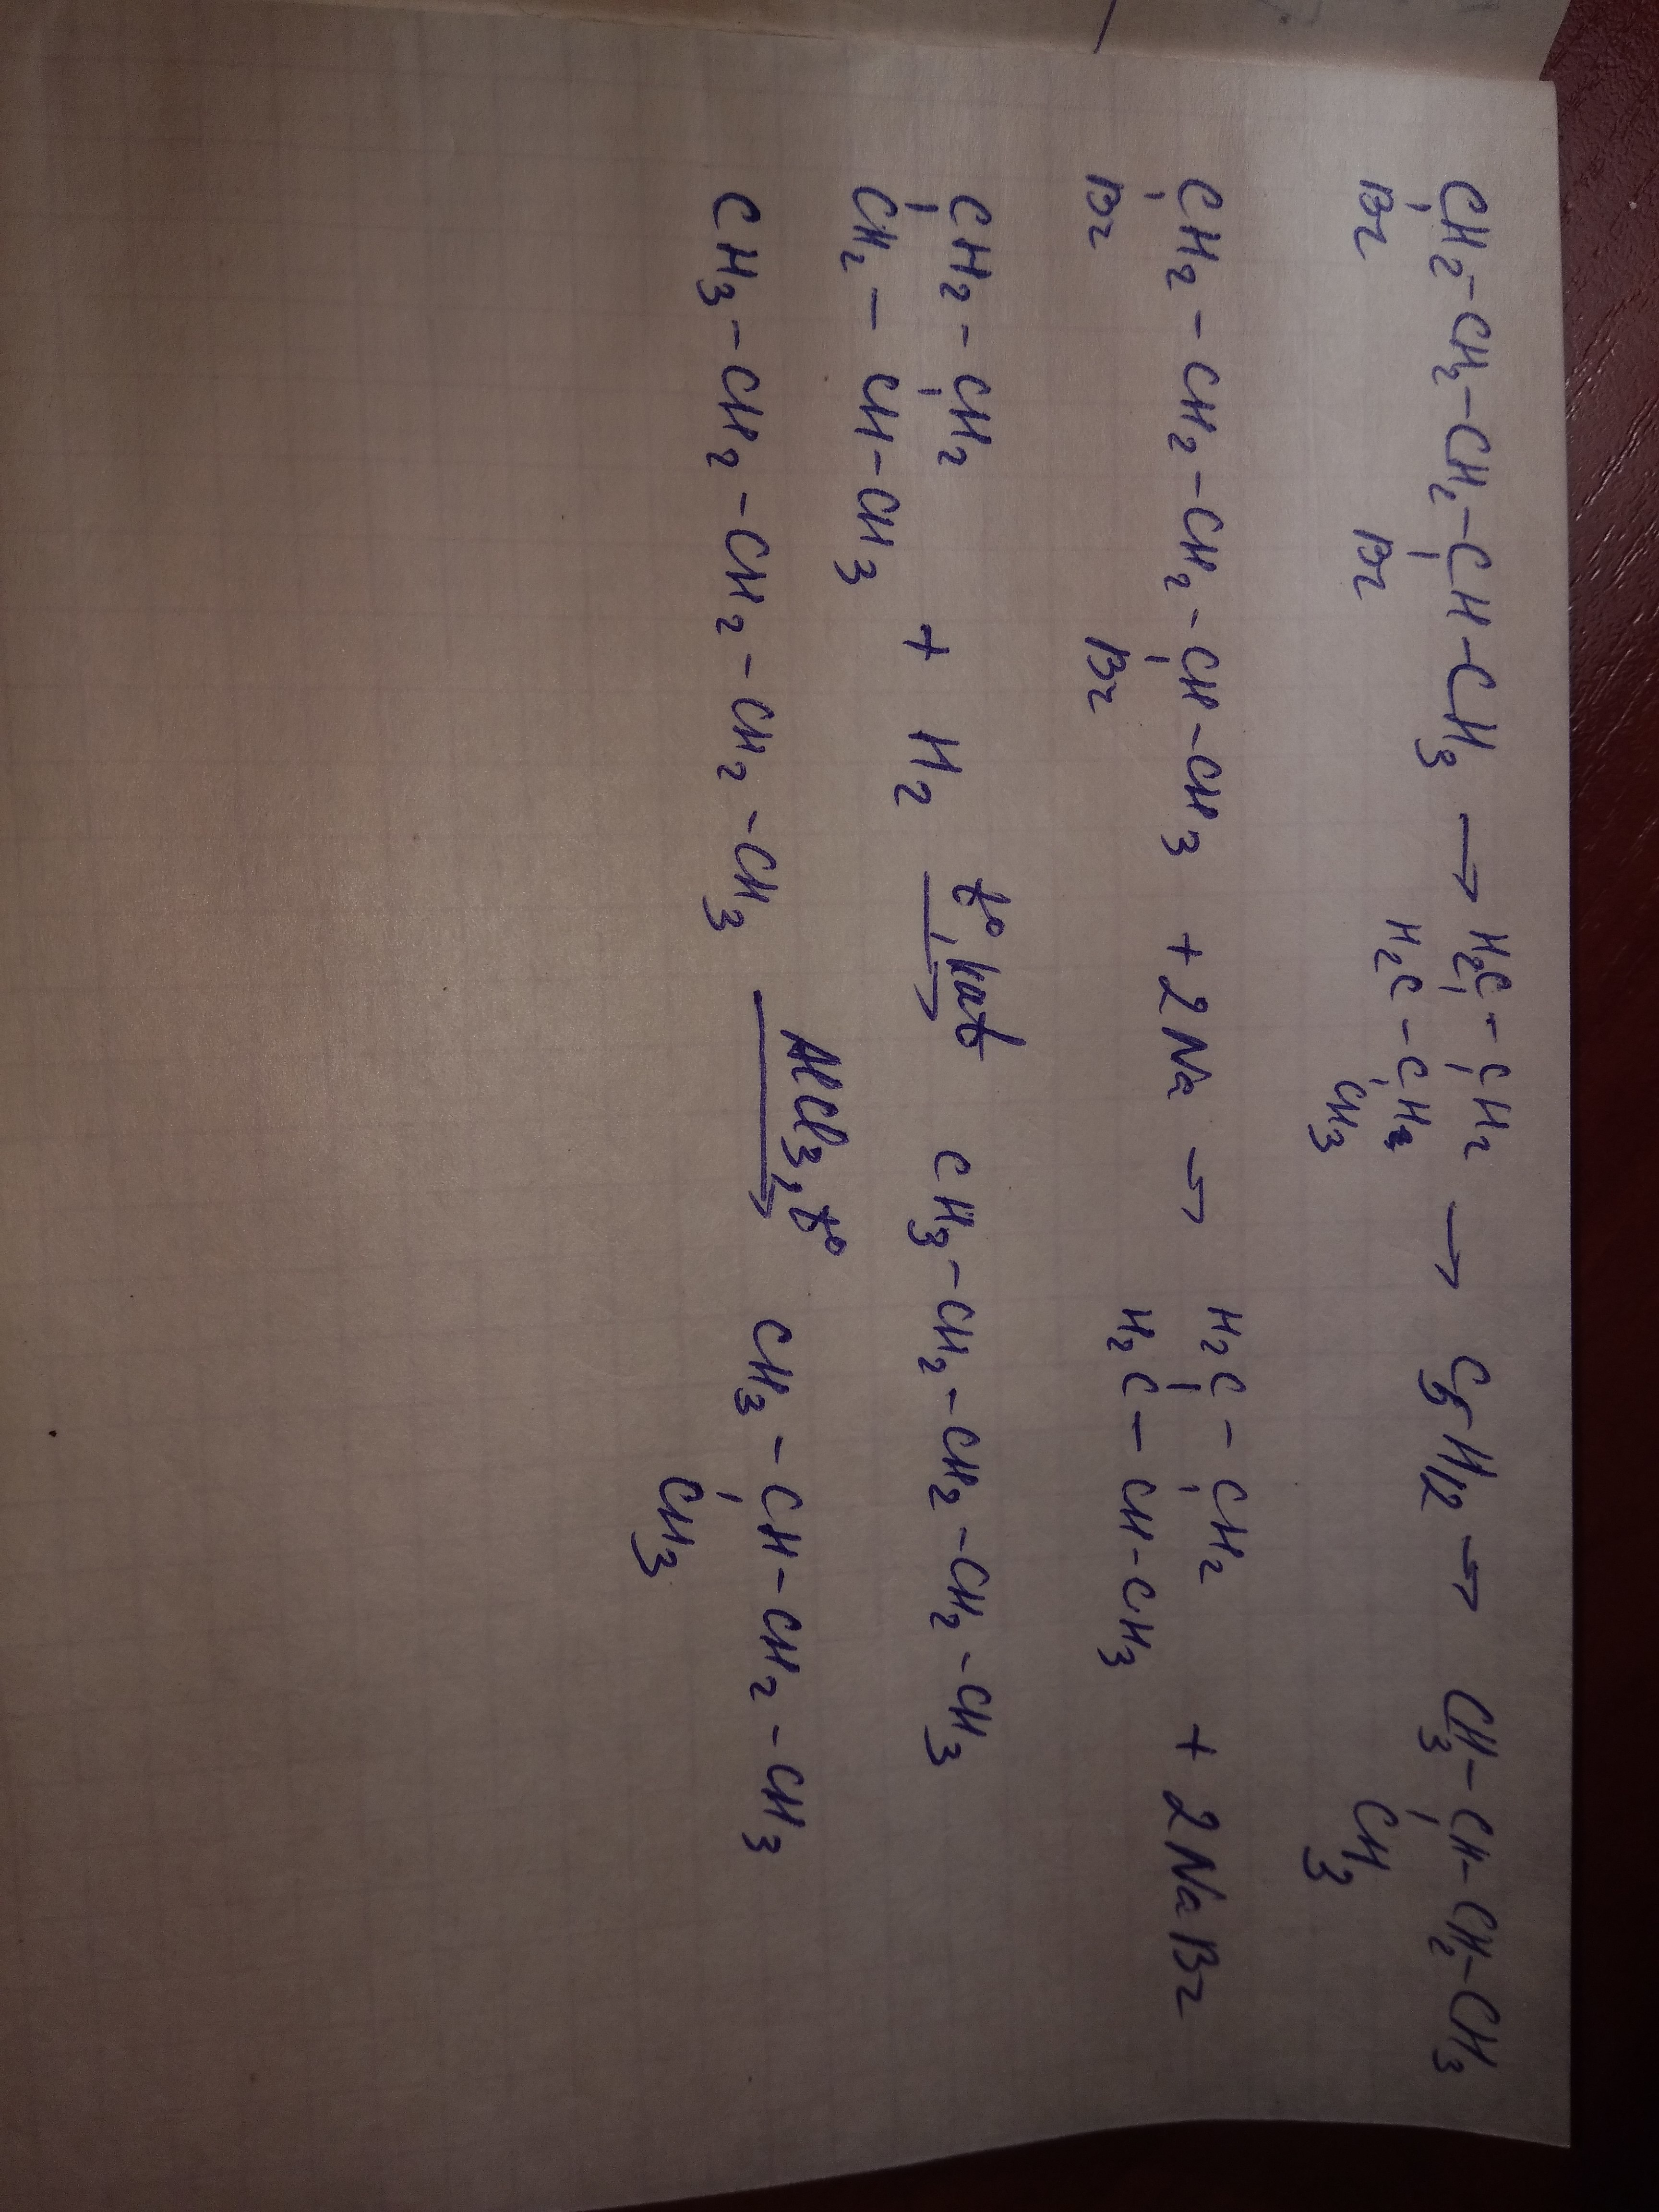 CH2-CH2-CH2-CH-CH3 → H2C-CH2 → C5H12 → CH3-CH-CH2-CH3
Br Br H2C-CH2 CH3
CH3
CH2-CH2-CH2-CH-CH3 + 2Na → H2C-CH2 + 2NaBr
Br Br H2C-CH-CH3
CH2-CH2 + H2 t°, kat → CH3-CH2-CH2-CH2-CH3
CH2-CH-CH3
CH3-CH2-CH2-CH2-CH3 AlCl3, t° → CH3-CH-CH2-CH3
CH3